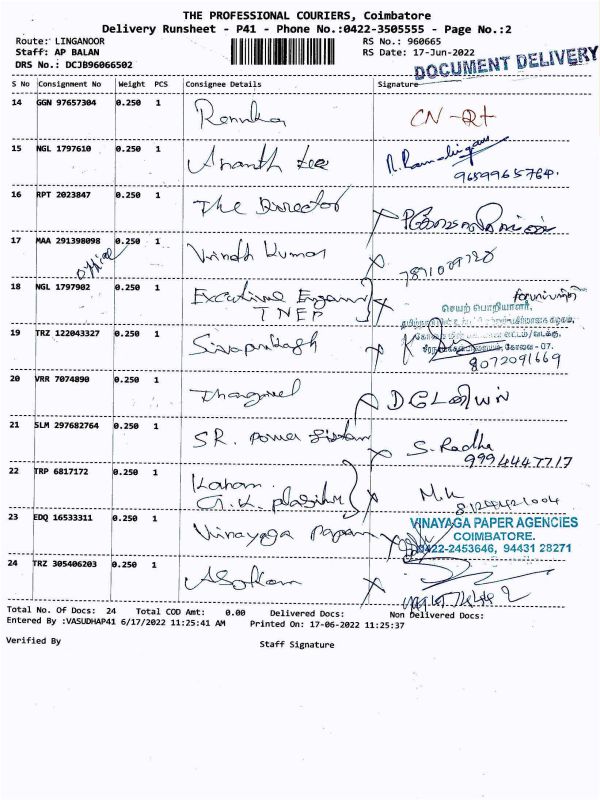 THE PROFESSIONAL COURIERS, Coimbatore
Delivery Runsheet - P41 - Phone No.:0422-3505555 - Page No.:2
Route: LINGANOOR
RS No.: 960665
Staff: AP BALAN
RS Date: 17-Jun-2022
DRS No.: DCJB96066502
DOCUMENT DELIVERY
S No Consignment No Weight PCS Consignee Details Signature
14 GGN 97657304 0.250 1 Renuka CN - Rt
15 NGL 1797610 0.250 1 Ananth R. Ramalingam
9659965764.
16 RPT 2023847 0.250 1 The Director
17 MAA 291398098 0.250 1 Vinoth Kumar
office
18 NGL 1797902 0.250 1 Executive Engineer
TNEP
செயற் பொறியாளர்,
கோவை - 07.
19 TRZ 122043327 0.250 1 Sivaprakash
8072091669
20 VRR 7074890 0.250 1 Thangavel
21 SLM 297682764 0.250 1 SR. Power S. Radha
9994447717
22 TRP 6817172 0.250 1 M.K
G.K. 
23 EDQ 16533311 0.250 1 Vinayaga Paper
VINAYAGA PAPER AGENCIES
COIMBATORE.
0422-2453646, 94431 28271
24 TRZ 305406203 0.250 1 Asokan
Total No. Of Docs: 24 Total COD Amt: 0.00 Delivered Docs: Non Delivered Docs:
Entered By :VASUDHAP41 6/17/2022 11:25:41 AM Printed On: 17-06-2022 11:25:37
Verified By Staff Signature